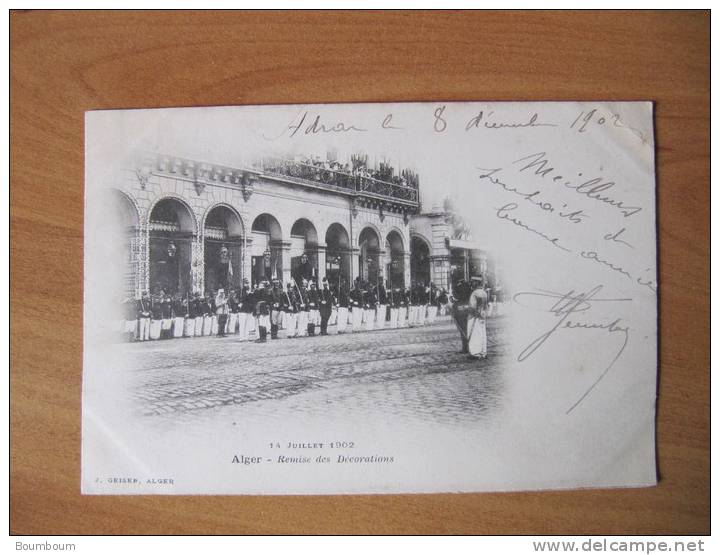 Adrar le 8 décembre 1902
Meilleurs
souhaits de
bonne année
14 JUILLET 1902
Alger - Remise des Décorations
J. GEISER, ALGER
Boumboum
www.delcampe.net